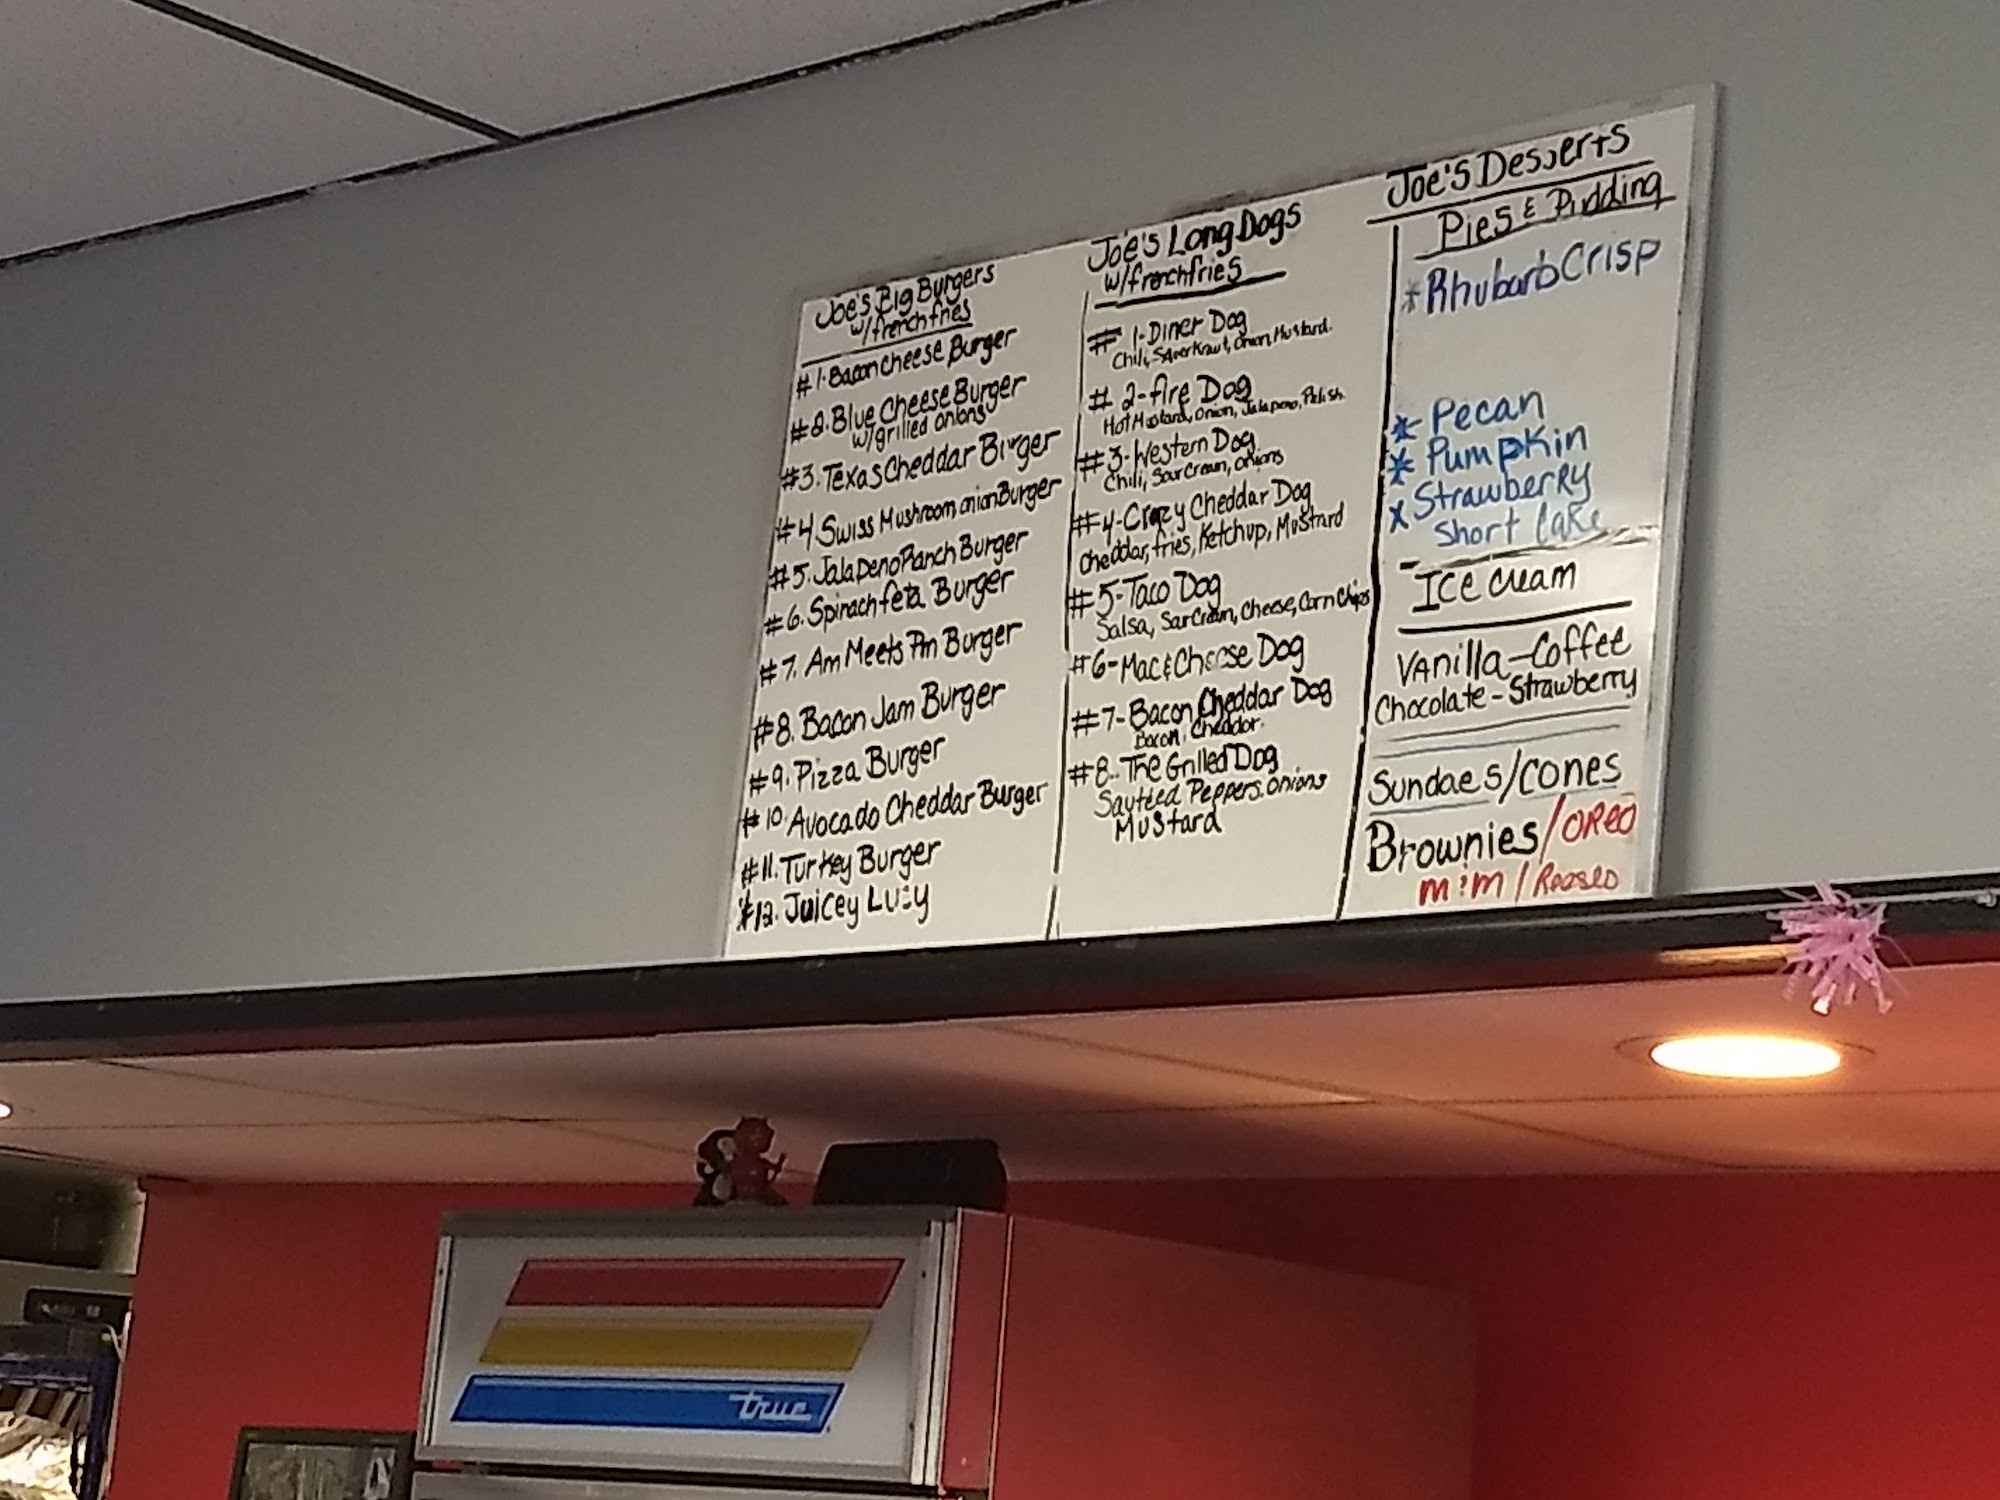 Joe's Big Burgers
w/french fries
#1. Bacon Cheese Burger
#2. Blue Cheese Burger
w/grilled onions
#3. Texas Cheddar Burger
#4 Swiss Mushroom onion Burger
#5. Jalapeno Ranch Burger
#6. Spinach feta Burger
#7. Am Meets Pm Burger
#8. Bacon Jam Burger
#9. Pizza Burger
#10. Avocado Cheddar Burger
#11. Turkey Burger
#12. Juicey Lucy
Joe's Long Dogs
w/french fries
# 1-Diner Dog
Chili, Saverkraut, Onion, Mustard.
# 2-fire Dog
Hot Mustard, Onion, Jalapeno, Relish
#3-Western Dog
Chili, Sour Cream, Onions
#4-Crazy Cheddar Dog
Cheddar, fries, Ketchup, Mustard
#5-Taco Dog
Salsa, Sour Cream, Cheese, Corn Chips
#6-Mac & Cheese Dog
#7-Bacon Cheddar Dog
Bacon, Cheddar.
#8-The Grilled Dog
Sauteed Peppers, Onions
Mustard
Joe's Desserts
Pies & Pudding
*Rhubarb Crisp
* Pecan
* Pumpkin
* Strawberry
Short Cake
Ice cream
Vanilla-Coffee
Chocolate-Strawberry
Sundaes/Cones
Brownies/OREO
M&M/Reeses
true